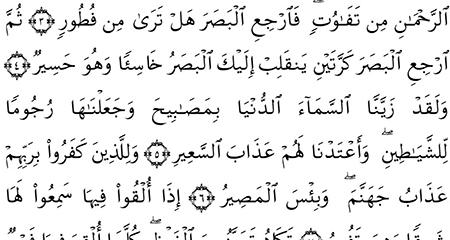 ٱلرَّحْمَٰنِ مِن تَفَٰوُتٍۖ فَٱرْجِعِ ٱلْبَصَرَ هَلْ تَرَىٰ مِن فُطُورٍ ﴿٣﴾ ثُمَّ
ٱرْجِعِ ٱلْبَصَرَ كَرَّتَيْنِ يَنقَلِبْ إِلَيْكَ ٱلْبَصَرُ خَاسِئًا وَهُوَ حَسِيرٌ ﴿٤﴾
وَلَقَدْ زَيَّنَّا ٱلسَّمَآءَ ٱلدُّنْيَا بِمَصَٰبِيحَ وَجَعَلْنَٰهَا رُجُومًا
لِّلشَّيَٰطِينِۖ وَأَعْتَدْنَا لَهُمْ عَذَابَ ٱلسَّعِيرِ ﴿٥﴾ وَلِلَّذِينَ كَفَرُوا۟ بِرَبِّهِمْ
عَذَابُ جَهَنَّمَۖ وَبِئْسَ ٱلْمَصِيرُ ﴿٦﴾ إِذَآ أُلْقُوا۟ فِيهَا سَمِعُوا۟ لَهَا